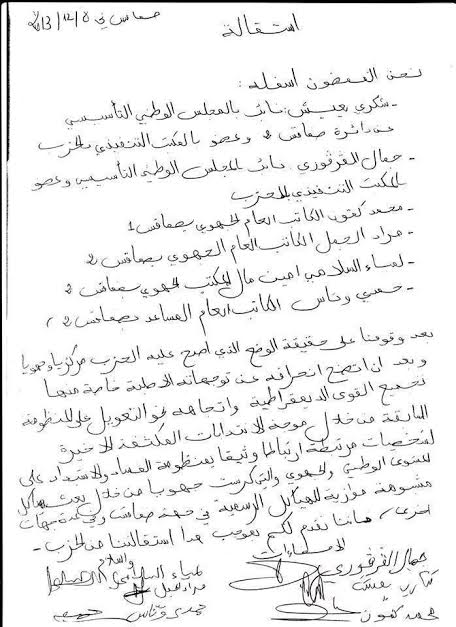 صفاقس في 8/12/2013
استقالة
نحن الممضون أسفله :
- شكري يعيش نائب بالمجلس الوطني التأسيسي
عن دائرة صفاقس 2 وعضو بالمكتب التنفيذي للحزب
- جمال القرقوري نائب بالمجلس الوطني التأسيسي وعضو
المكتب التنفيذي للحزب
- محمد كمون الكاتب العام الجهوي بصفاقس 1
- مراد الجمل الكاتب العام الجهوي بصفاقس 2
- لمياء السلامي امين مال المكتب الجهوي بصفاقس 2
- حمدي وناس الكاتب العام المساعد بصفاقس 2
بعد وقوفنا على حقيقة الوضع الذي أصبح عليه الحزب مركزيا وجهويا
وبعد ان اتضح انحرافه عن توجهاته الاصلية خاصة منها
تجميع القوى الديمقراطية واتجاهه نحو التعويل على المنظومة
السابقة من خلال موجة الانتدابات المكثفة الاخيرة
لشخصيات مرتبطة ارتباطا وثيقا بمنظومة الفساد والاستبداد على
المستوى الوطني والجهوي والتي تكرست جهويا من خلال بعث هياكل
مشبوهة موازية للهياكل الرسمية في جهة صفاقس وفي عدة جهات
اخرى، فإننا نقدم لكم بموجب هذا استقالتنا من الحزب -
والسلام
الامضاءات
جمال القرقوري
لمياء السلامي
مراد الجمل
شكري يعيش
حمدي وناس
محمد كمون